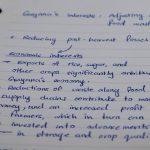 Guyana's interests: Adjusting
food waste
• Reducing post-harvest losses
Economic interests
- Exports of rice, sugar, and
other crops significantly
Guyana's economy.
- Reductions of waste along food
supply chains contribute to more
and an increased profit
farmers, which in turn can
invested into advancements
in storage and crop quality